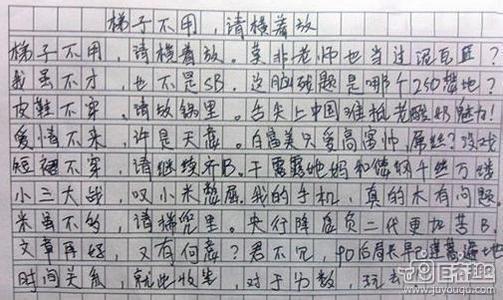 梯子不用,请横着放
梯子不用,请横着放。莫非老师也当过泥瓦匠?
我虽不才,也不是SB。这脑残题是哪个250整地?
皮鞋不穿,请放锅里。舌尖上中国难抵老酸奶魅力!
爱情不来,许是天意。白富美只爱高富帅,屌丝?没戏
短裙不穿,请继续齐B。干露露她妈和
小三大战,叹小米憋屈。我的手机,真的木有问题。
米虽不多,请梯兜里。央行降息负二代更加苦B。
文章再好,又有何意?君不见,90后周
时间关系,就此收笔。对于分数,
中国百科网
www.juyouqu.com